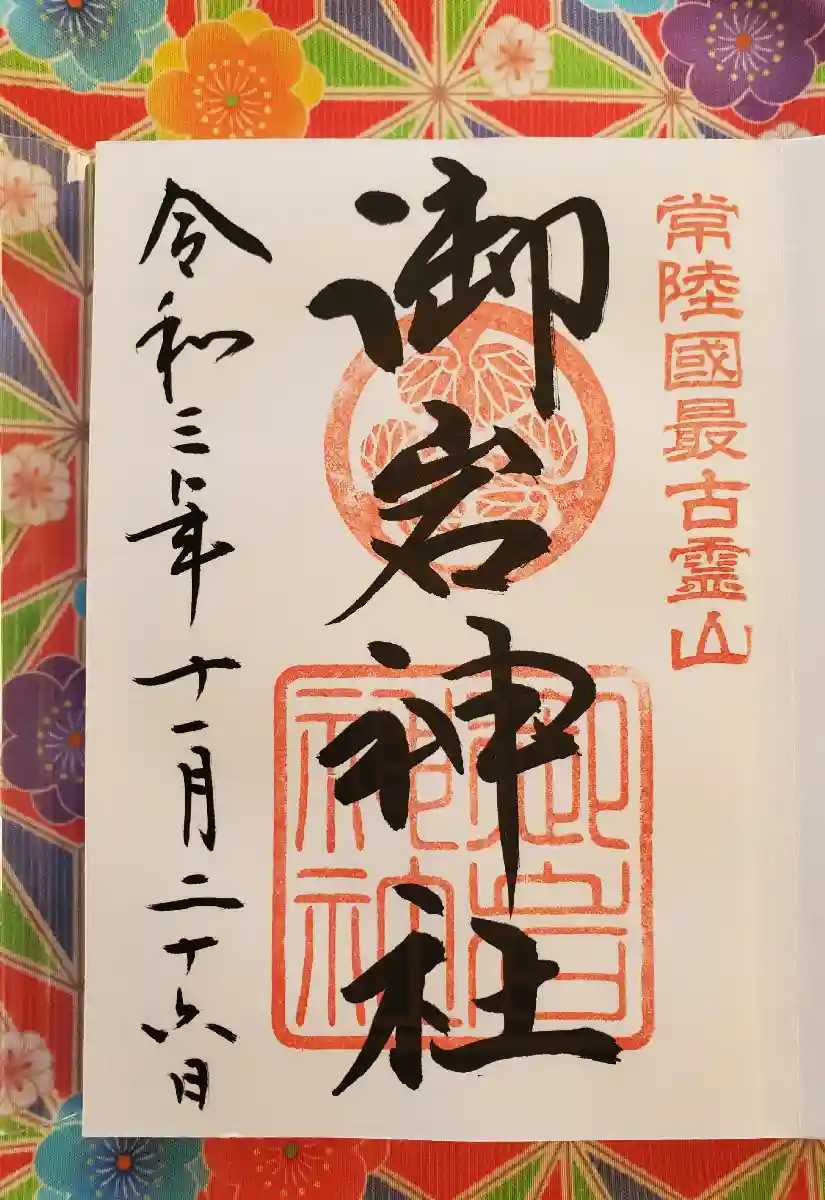 常陸國最古霊山
御岩神社
令和三年十一月二十六日